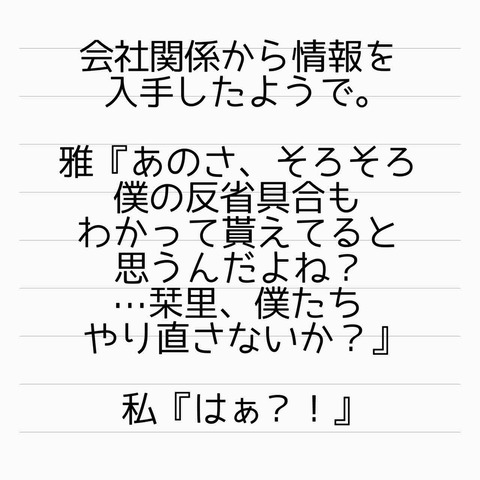 会社関係から情報を
入手したようで。
雅『あのさ、そろそろ
僕の反省具合も
わかって貰えてると
思うんだよね？
…栞里、僕たち
やり直さないか？』
私『はぁ？！』